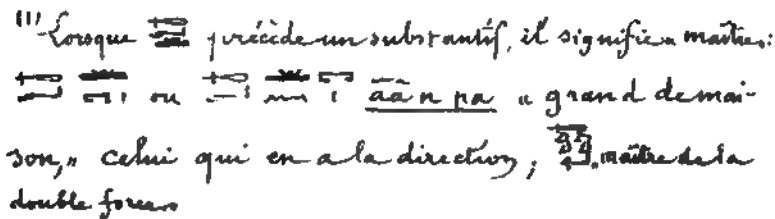 (1) Lorsque 𓉻 précède un substantif, il signifie « maître »:
ou āā n pa « grand de mai-
son, » celui qui en a la direction; maître de la
double force.